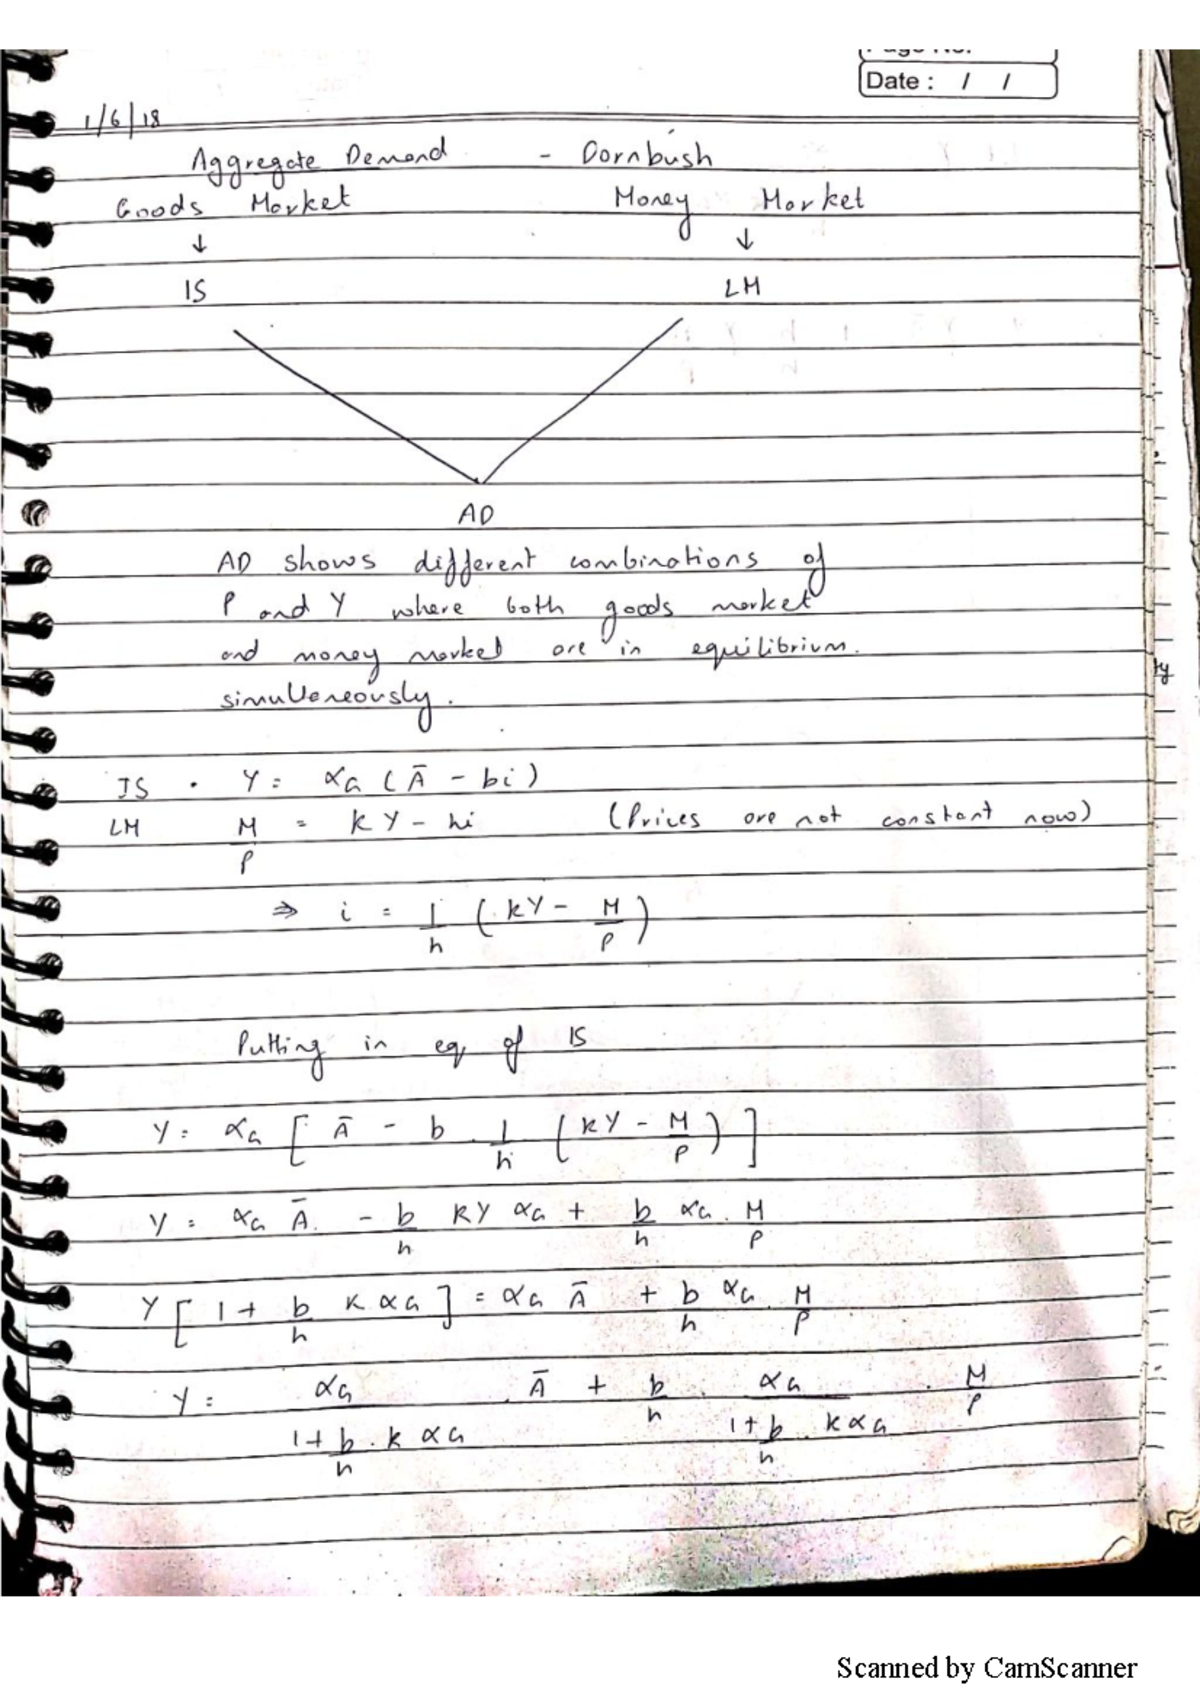 Date : / /
1/6/18
Aggregate Demand - Dornbush
Goods Market Money Market
↓ ↓
IS LM
AD
AD shows different combinations of
P and Y where both goods market
and money market are in equilibrium.
simultaneously.
IS . Y = αG ( Ā - bi )
LM M/P = kY - hi (Prices are not constant now)
⇒ i = 1/h ( kY - M/P )
Putting in eq of IS
Y = αG [ Ā - b . 1/h ( kY - M/P ) ]
Y = αG Ā. - b/h kY αG + b/h αG . M/P
Y [ 1 + b/h k αG ] = αG Ā + b/h αG . M/P
Y = αG / (1 + b/h . k αG) . Ā + b/h . αG / (1 + b/h . k αG) . M/P
Scanned by CamScanner